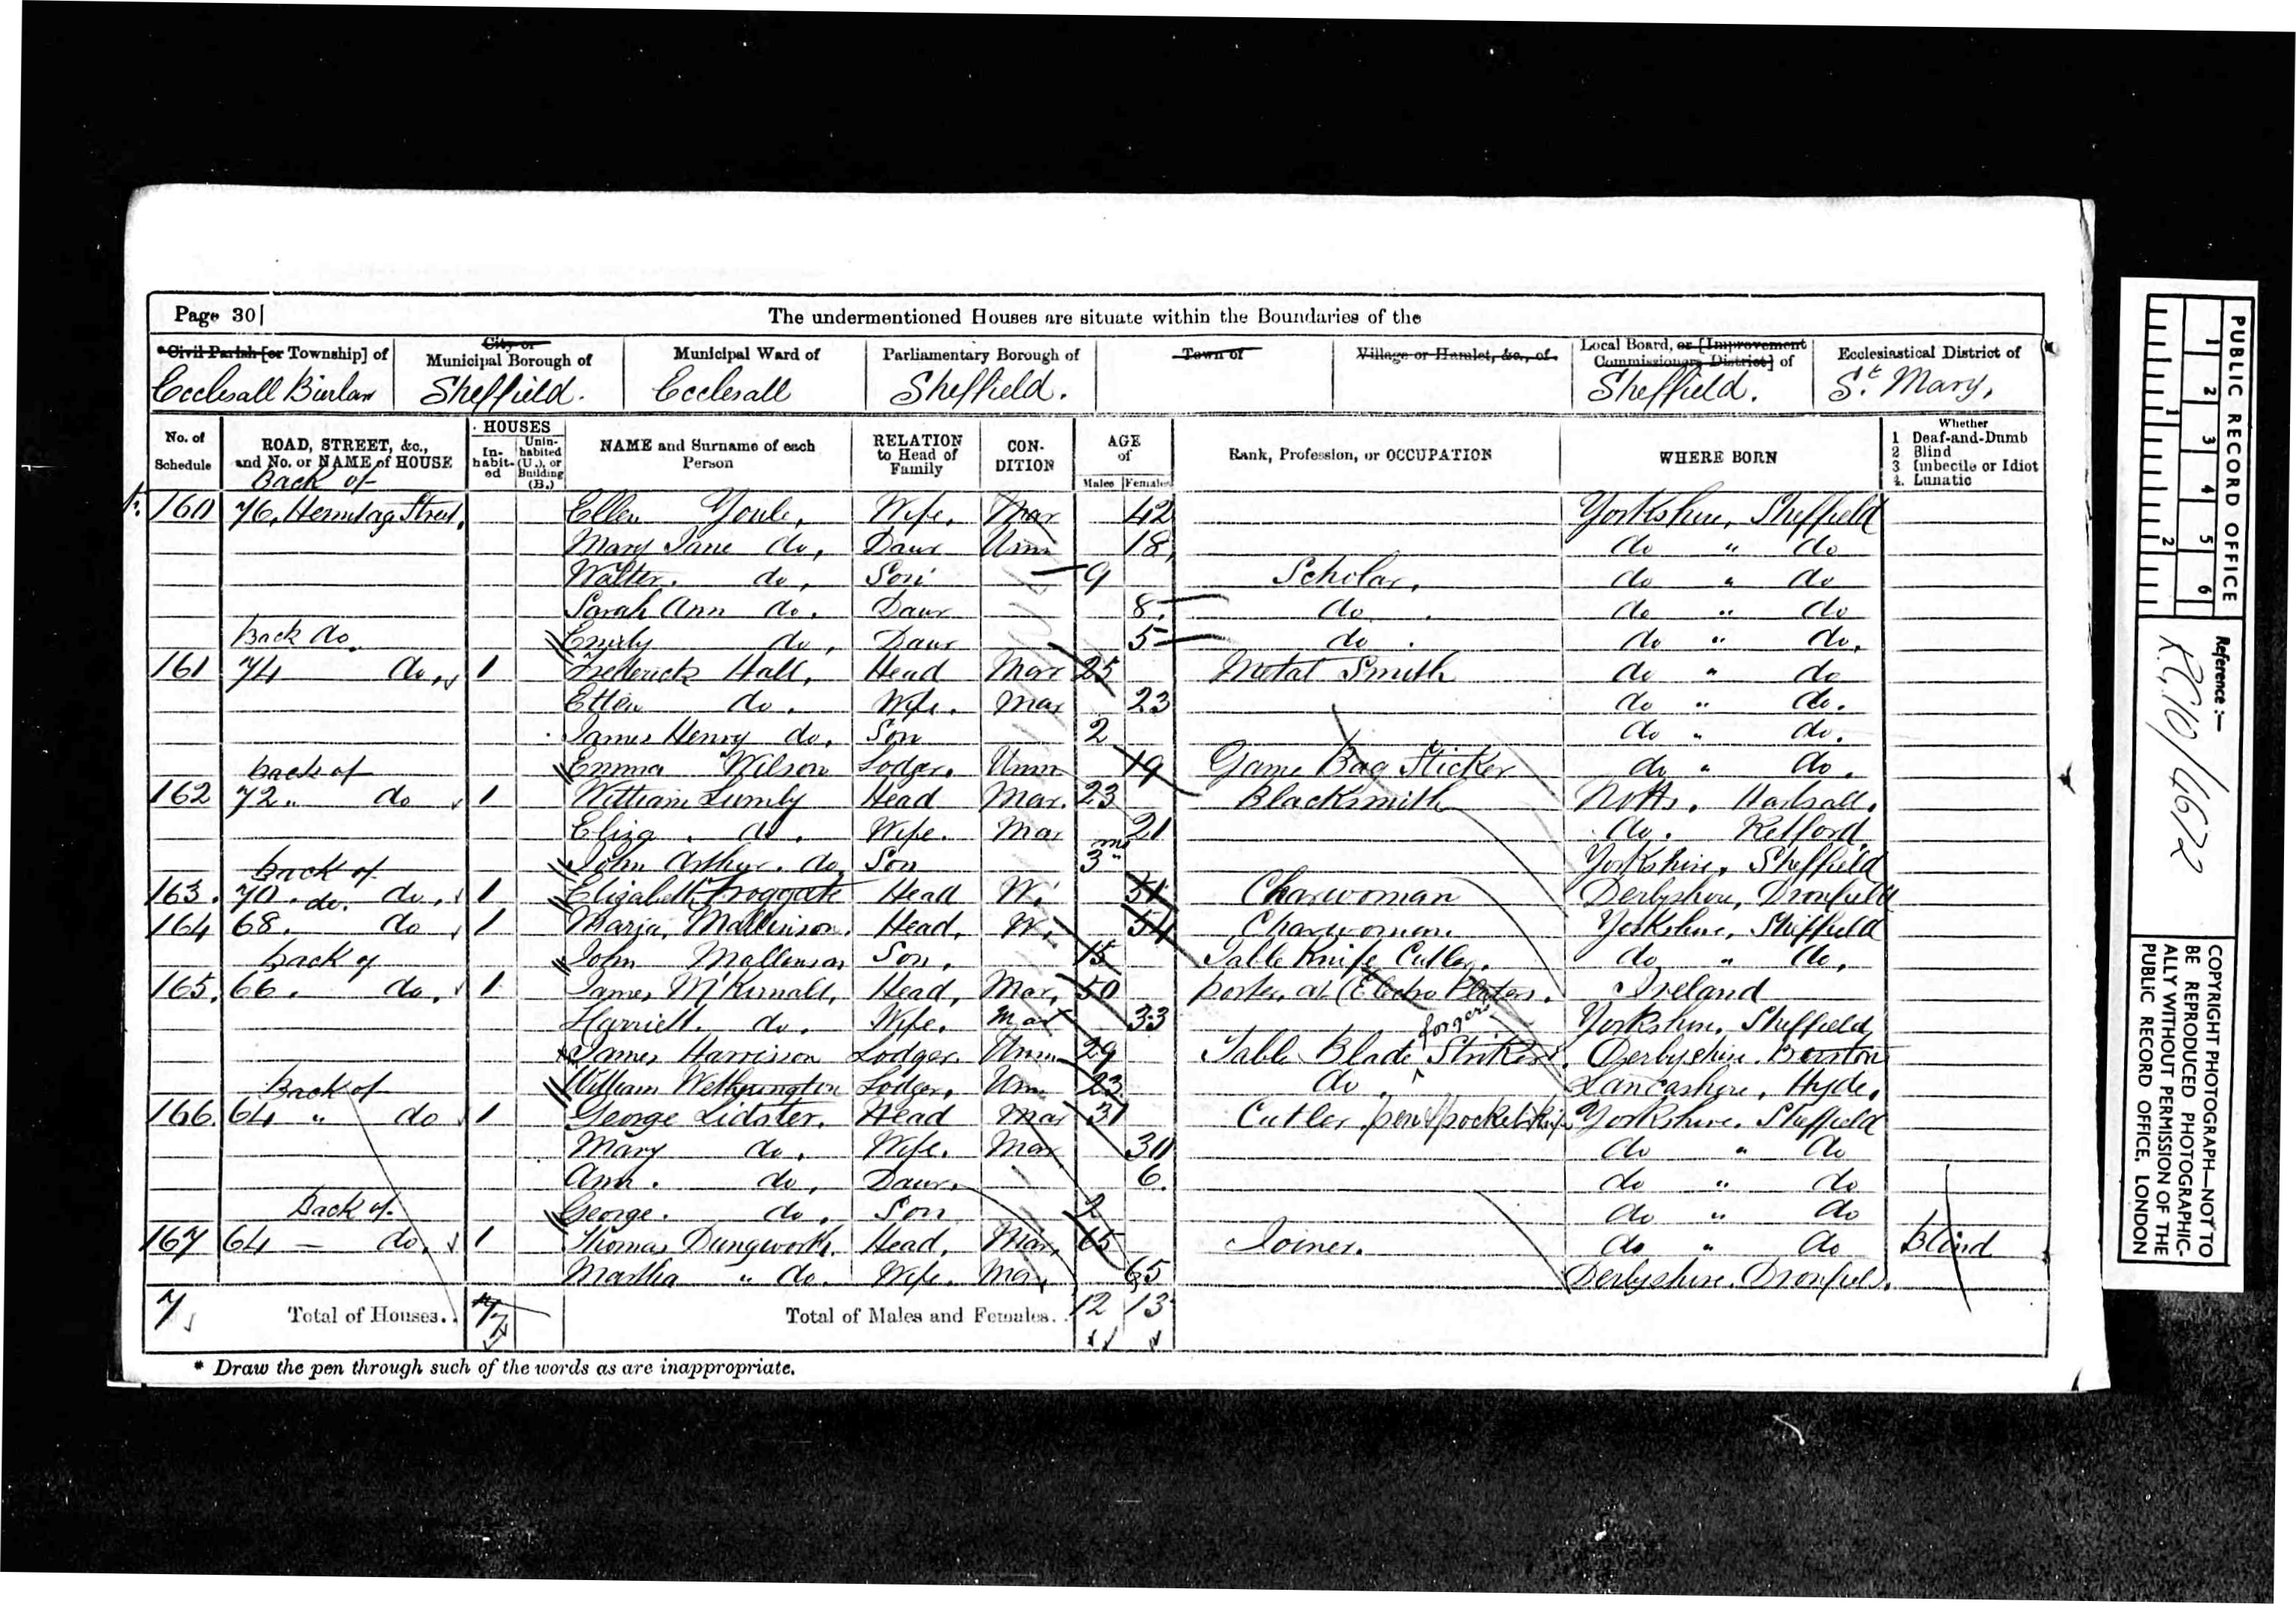 Page 30
The undermentioned Houses are situate within the Boundaries of the
*Civil Parish [or Township] of
City or Municipal Borough of
Municipal Ward of
Parliamentary Borough of
Town of
Village or Hamlet, &c., of
Local Board, or [Improvement Commissioners District] of
Ecclesiastical District of
Ecclesall Bierlow
Sheffield.
Ecclesall
Sheffield.
Sheffield.
St Mary,
No. of Schedule
ROAD, STREET, &c., and No. or NAME of HOUSE
HOUSES
In-habit-ed
Unin-habited (U.), or Building (B.)
NAME and Surname of each Person
RELATION to Head of Family
CON-DITION
AGE of
Males
Females
Rank, Profession, or OCCUPATION
WHERE BORN
Whether
1 Deaf-and-Dumb
2 Blind
3 Imbecile or Idiot
4. Lunatic
Back of
160 76, Hermitage Street, Ellen Youle, Wife, Mar 42 Yorkshire, Sheffield
Mary Jane do, Daur Unm 18, do " do
Walter. do, Son 9 Scholar, do " do
Sarah Ann do. Daur 8 do do " do
Back do.
Emily do, Daur 5 do. do " do.
161 74 do, 1 Frederick Hall, Head Mar 25 Metal Smith do " do
Ellen do. Wife. Mar 23 do " do.
James Henry do. Son 2 do " do.
back of
Emma Wilson Lodger, Unm 19 Game Bag Sticker do " do.
162 72 " do 1 William Lumly Head Mar. 23 Blacksmith Notts.
Eliza. do. Wife. Mar 21 do. Retford
back of
John Arthur. do Son 3 mo Yorkshire, Sheffield
163. 70. do. do. 1 Elizabeth Froggate Head W. 51 Charwoman Derbyshire, Dronfield
164 68. do 1 Maria, Mallinson. Head, W. 54 Charwoman. Yorkshire, Sheffield
back of
John Mallinson Son, 15 Table Knife Cutler, do " do.
165. 66. do. 1 James Head, Mar, 50 porter at Electro Platers. Ireland
Harriett. do. Wife. Mar 33 Yorkshire, Sheffield
James Harrisson Lodger. Unm 29 Table Blade forgers Striker Derbyshire.
Back of
William Lodger, Unm 23 do. Lancashire, Hyde,
166. 64 " do 1 George Lidster. Head Mar 31 Cutler pen & pocket Yorkshire. Sheffield
Mary do. Wife. Mar 30 do " do
Ann. do, Daur. 6. do " do
Back of.
George. do, Son 2 do " do
167 64 — do. 1 Thomas Dungworth. Head, Mar, 65 Joiner. do " do blind
Martha " do. Wife. Mar, 65 Derbyshire. Dronfield.
7 Total of Houses.. 7 Total of Males and Females.. 12 13
* Draw the pen through such of the words as are inappropriate.
PUBLIC RECORD OFFICE
1 2 3 4 5 6
1 2
Reference :—
R.G.10/4672
COPYRIGHT PHOTOGRAPH—NOT TO
BE REPRODUCED PHOTOGRAPHIC-
ALLY WITHOUT PERMISSION OF THE
PUBLIC RECORD OFFICE, LONDON